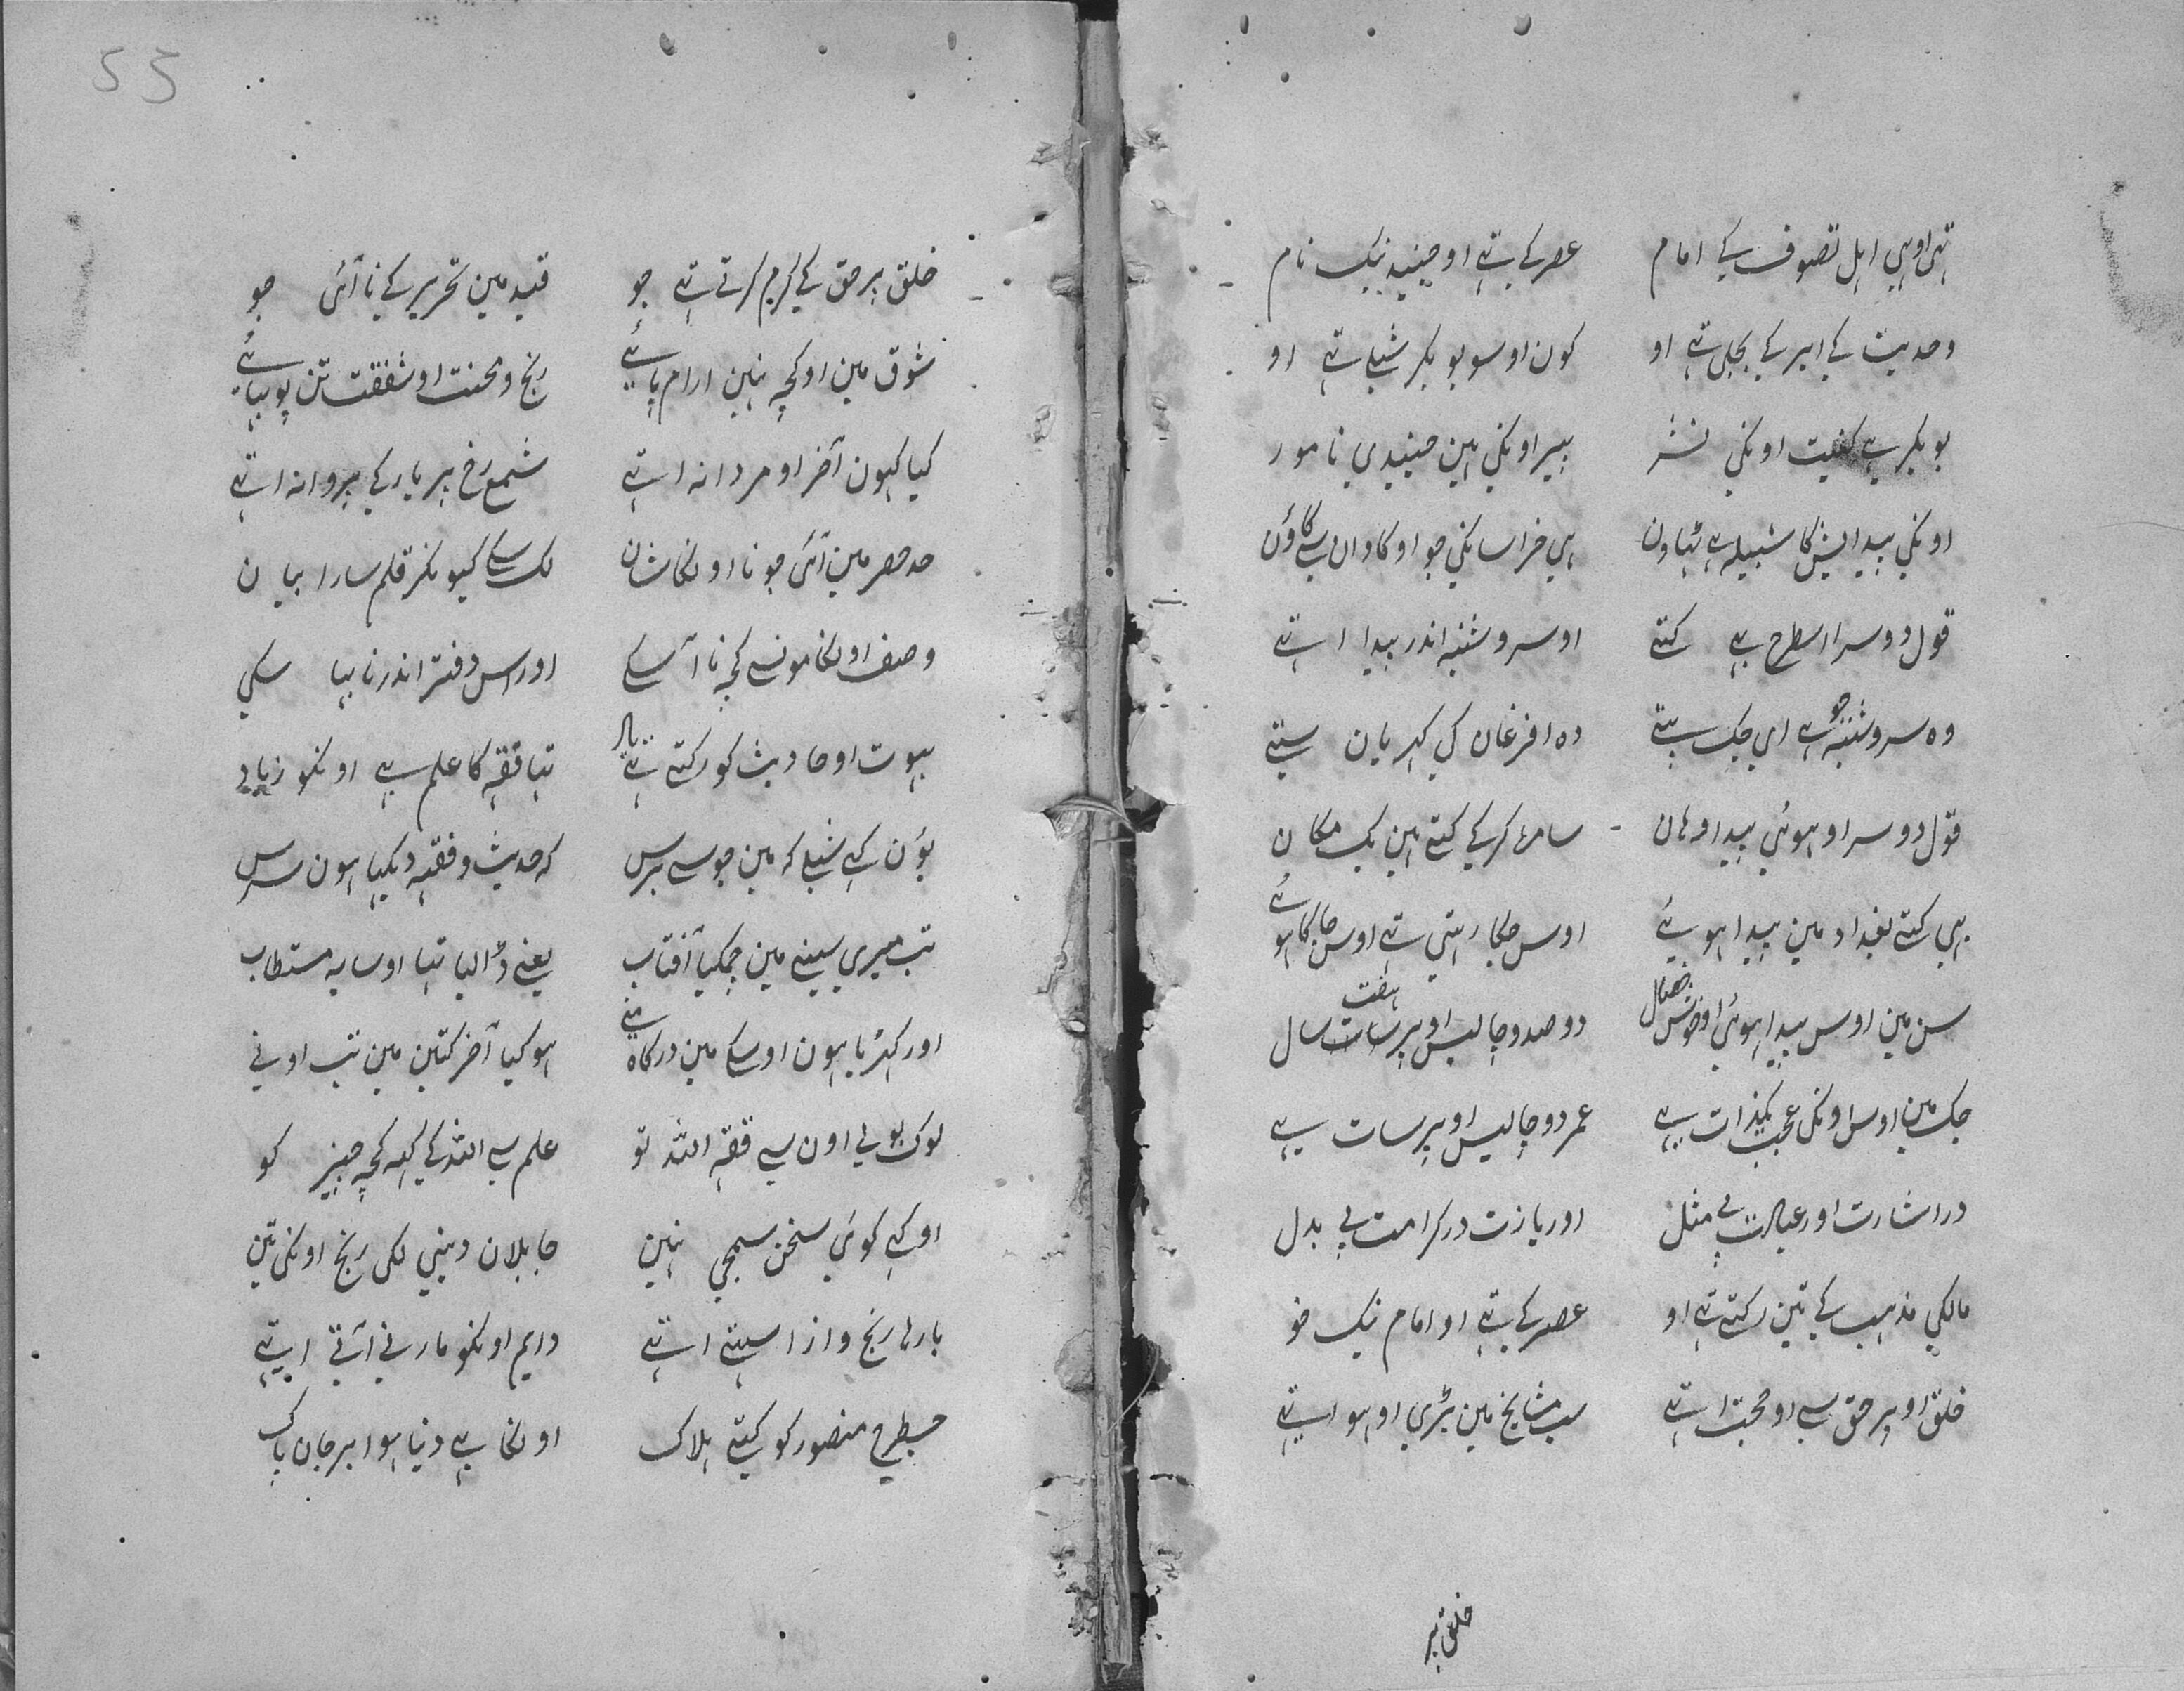 تہی او ہی اہل تصوف کے امام عصر کے تہے او جنید نیک نام
وحدیت کے ابر کے بجلی تہے او کون او سو بو بکر شبلی تہے او
بو بکر ہے کنیت اونکی نشر پیر اونکی ہین جنیدی نامور
اونکی پیدایش کا شبیلہ ہے ٹہاون ہی خراسانکی جو او کاوان سے گاؤن
قول دوسرا اسطرح ہے کہتے اوسروشنہ اندر پیدا اتہے
وہ سروشنہ جو ہے ای جگ ہتے دہ افرغان کی
قول دوسرا او ہوئی پیدا وہان سامرہ کرکے کہتے ہین یک مکان
بہی کہتے بغداد مین پیدا ہوئے اوس جگا رہتی تہے اوس جاگا ہوئے
سن مین اوس پیدا ہوئی او خوش خصال دو صد و چالیس اوپر ہفت سال
جگ مین اوس اونکی عجب یکذات ہے عمر دو چالیس اوپر سات ہے
در اشارت اور عبارت بے مثل اور یازت در کرامت بے بدل
مالکی مذہب کے تین رکہتے تہے او عصر کے تہے او امام نیک خو
خلق اوپر حق سے او محبت اتہے سب مشایخ مین بڑی او ہو اتہے
خلق پر
55
خلق پر حق کے کرم کرتے تہے جو قید مین تحریر کے نا آئی جو
شوق مین او کچہ نہین ارام پائے رنج و محنت او شفقت تن پو بہائے
کیا کہون آخر او مردانہ اتہے شمع رخ پر یار کے پروانہ اتہے
حد حصر مین آئی جو نا اونکا شان لک سکے کیونکر قلم سارا بیان
وصف اونکا مونسے کچہ نا آ سکے اور اس دفتر اندر نا سکی
بہوت او حادیث کو رکہتے تہے یاد تہا فقہ کا علم بے اونکو زیاد
یؤن کہے شبلی کہ مین جو سے برس کہ حدیث و فقہ دیکہا ہون سرس
تب میری سینے مین چمکیا آفتاب یعنے ڈالیا تہا او سایہ مستطاب
اور کہڑیا ہون اوسکے مین درگاہ منے ہو کیا آخر کتین مین تب اونے
لوک بولے اون سے فقہ اللہ تو علم سے اللہ کے کہہ کچہ چیز کو
او کہے کوئی سخن سمجی نہین جاہلان دینی لکی رنج اونکی تین
بارہا رنج و ازا سہتے اتہے دایم اونکو مارنے آتے اتہے
جسطرح منصور کو کیتے ہلاک اونکا ہے دنیا ہوا برجان پاک